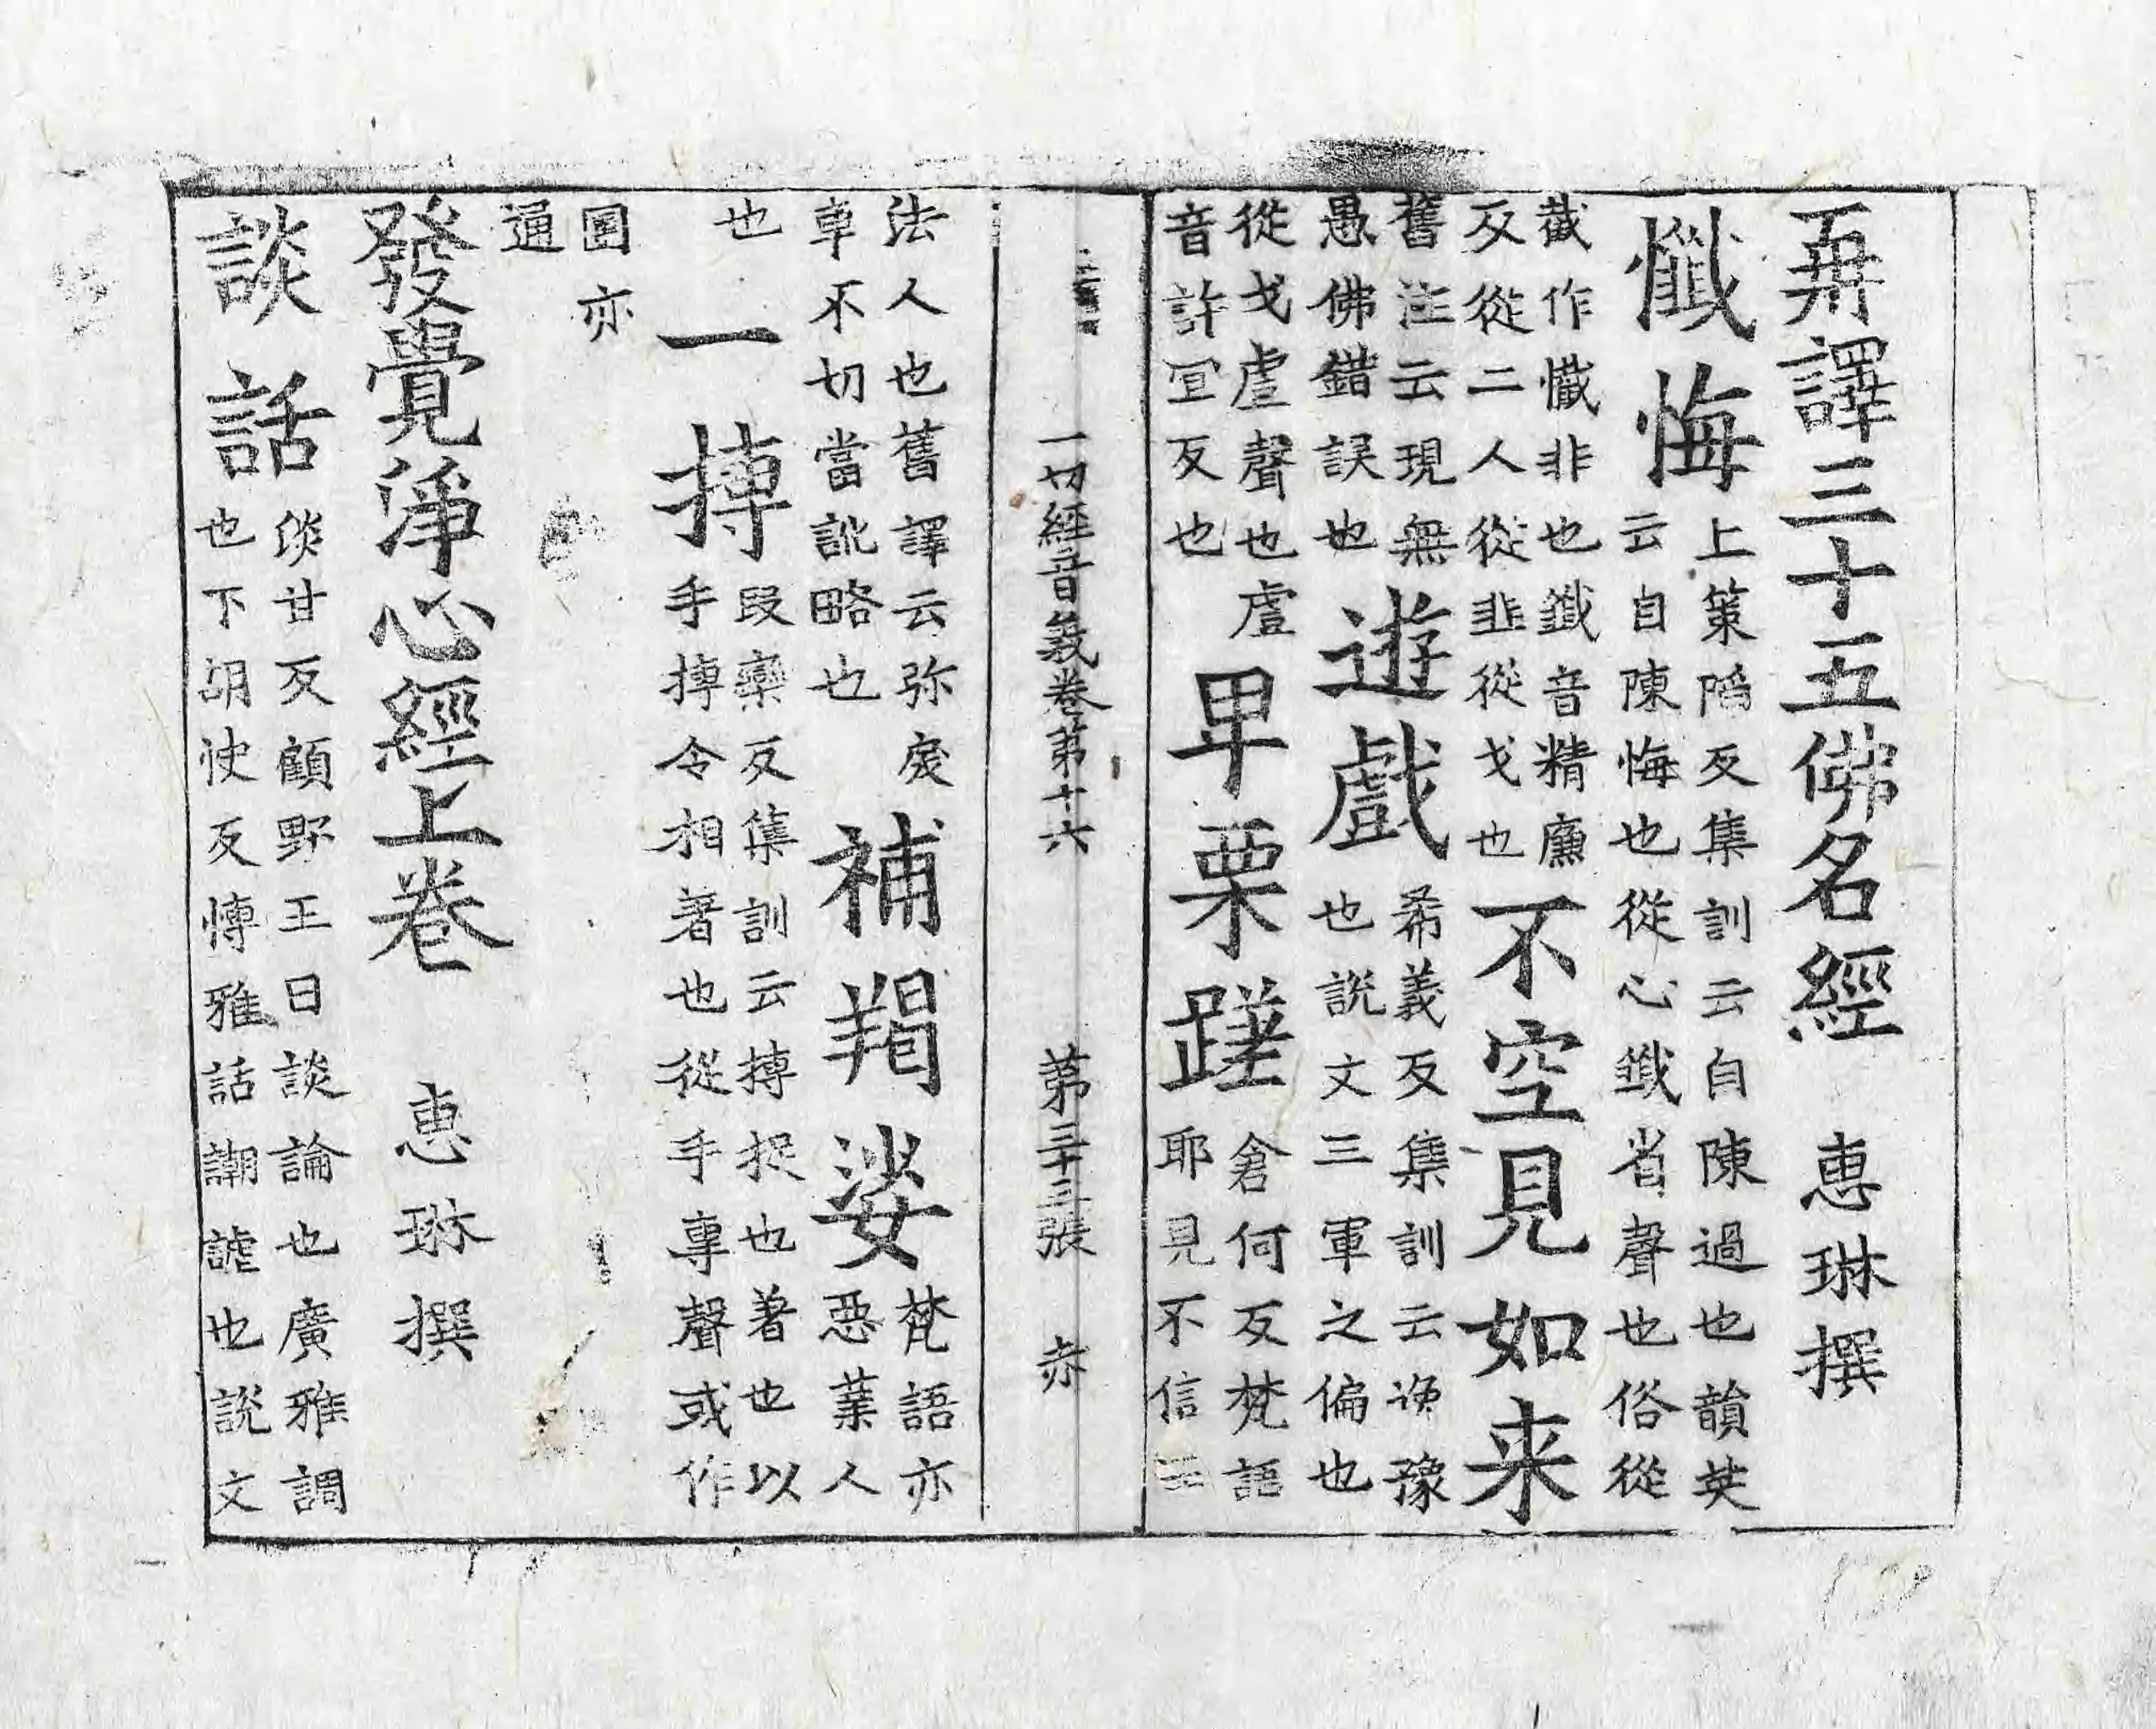 再譯三十五佛名經　惠琳撰
懺悔上策陷反集訓云自陳過也韻英
云自陳悔也從心韱省聲也俗從
截作懺非也韱音精廉
反從二人從韭從戈也不空見如来
舊注云現無
愚佛錯誤也遊戲希義反集訓云遊豫
也說文三軍之偏也
從戈䖒聲也䖒
音許宜反也畢栗蹉倉何反梵語
耶見不信
一切經音義卷第十六　第三十三張　赤
法人也舊譯云弥戾
車不切當訛略也補羯娑梵語亦
惡業人
也一摶段欒反集訓云摶捉也著也以
手摶令相著也從手專聲或作
團亦
通
發覺淨心經上卷　惠琳撰
談話淡甘反顧野王曰談論也廣雅調
也下胡快反博雅話調謔也說文